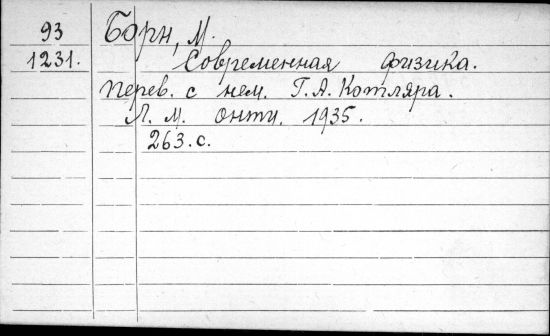 93 Борн, М.
1231. Современная физика.
перев. с нем. Г.А. Котляра.
Л. М. онти. 1935.
263. с.